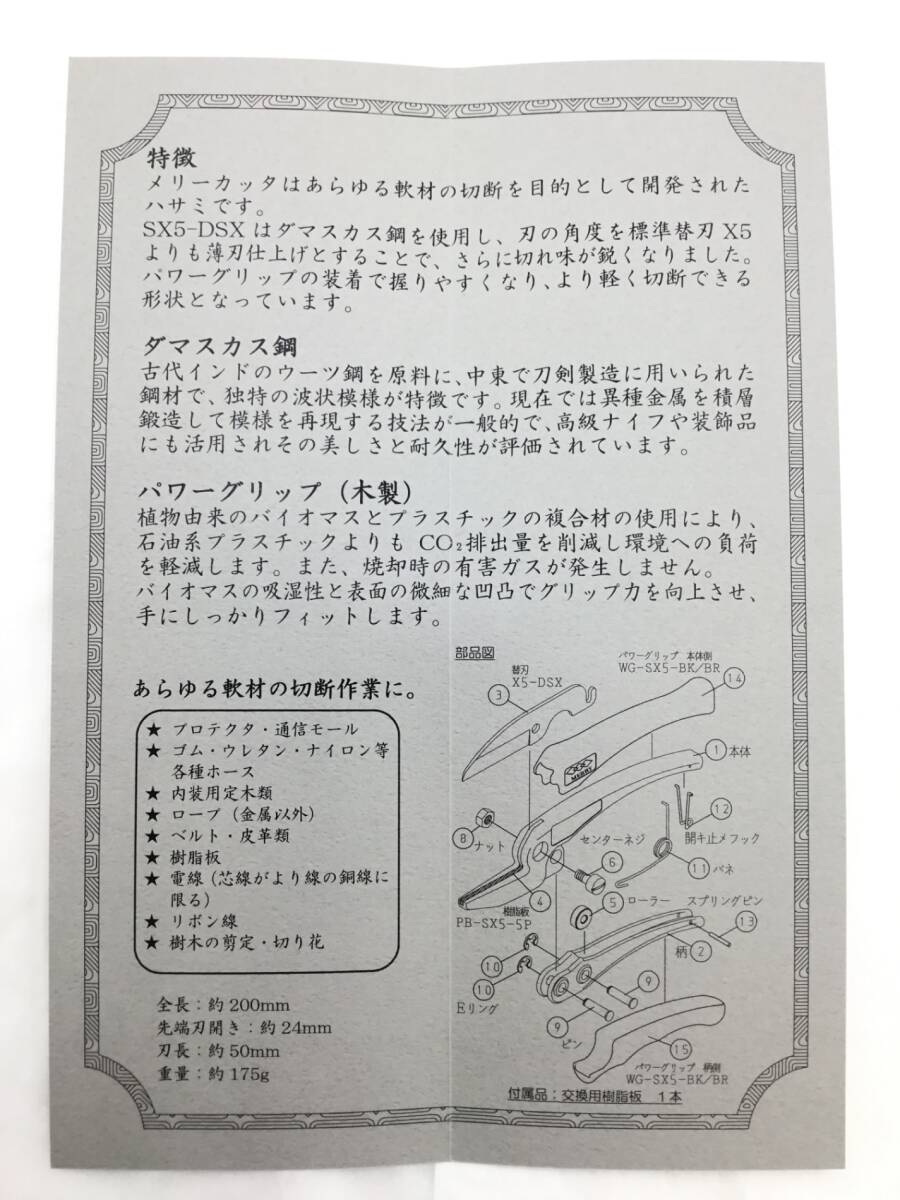 特徴
メリーカッタはあらゆる軟材の切断を目的として開発された
ハサミです。
SX5-DSX はダマスカス鋼を使用し、刃の角度を標準替刃 X5
よりも薄刃仕上げとすることで、さらに切れ味が鋭くなりました。
パワーグリップの装着で握りやすくなり、より軽く切断できる
形状となっています。
ダマスカス鋼
古代インドのウーツ鋼を原料に、中東で刀剣製造に用いられた
鋼材で、独特の波状模様が特徴です。現在では異種金属を積層
鍛造して模様を再現する技法が一般的で、高級ナイフや装飾品
にも活用されその美しさと耐久性が評価されています。
パワーグリップ（木製）
植物由来のバイオマスとプラスチックの複合材の使用により、
石油系プラスチックよりも CO₂排出量を削減し環境への負荷
を軽減します。また、焼却時の有害ガスが発生しません。
バイオマスの吸湿性と表面の微細な凹凸でグリップ力を向上させ、
手にしっかりフィットします。
あらゆる軟材の切断作業に。
★ プロテクタ・通信モール
★ ゴム・ウレタン・ナイロン等
各種ホース
★ 内装用定木類
★ ロープ（金属以外）
★ ベルト・皮革類
★ 樹脂板
★ 電線（芯線がより線の銅線に
限る）
★ リボン線
★ 樹木の剪定・切り花
全長：約 200mm
先端刃開き：約 24mm
刃長：約 50mm
重量：約 175g
部品図
パワーグリップ 本体側
WG-SX5-BK/BR
14
替刃
X5-DSX
3
MERRY
1 本体
12
開キ止メフック
8
ナット
センターネジ
6
11 バネ
4
樹脂板
PB-SX5-5P
5 ローラー
スプリングピン
13
柄 2
10
10
Eリング
9
9
ピン
15
パワーグリップ 柄側
WG-SX5-BK/BR
付属品：交換用樹脂板 1本